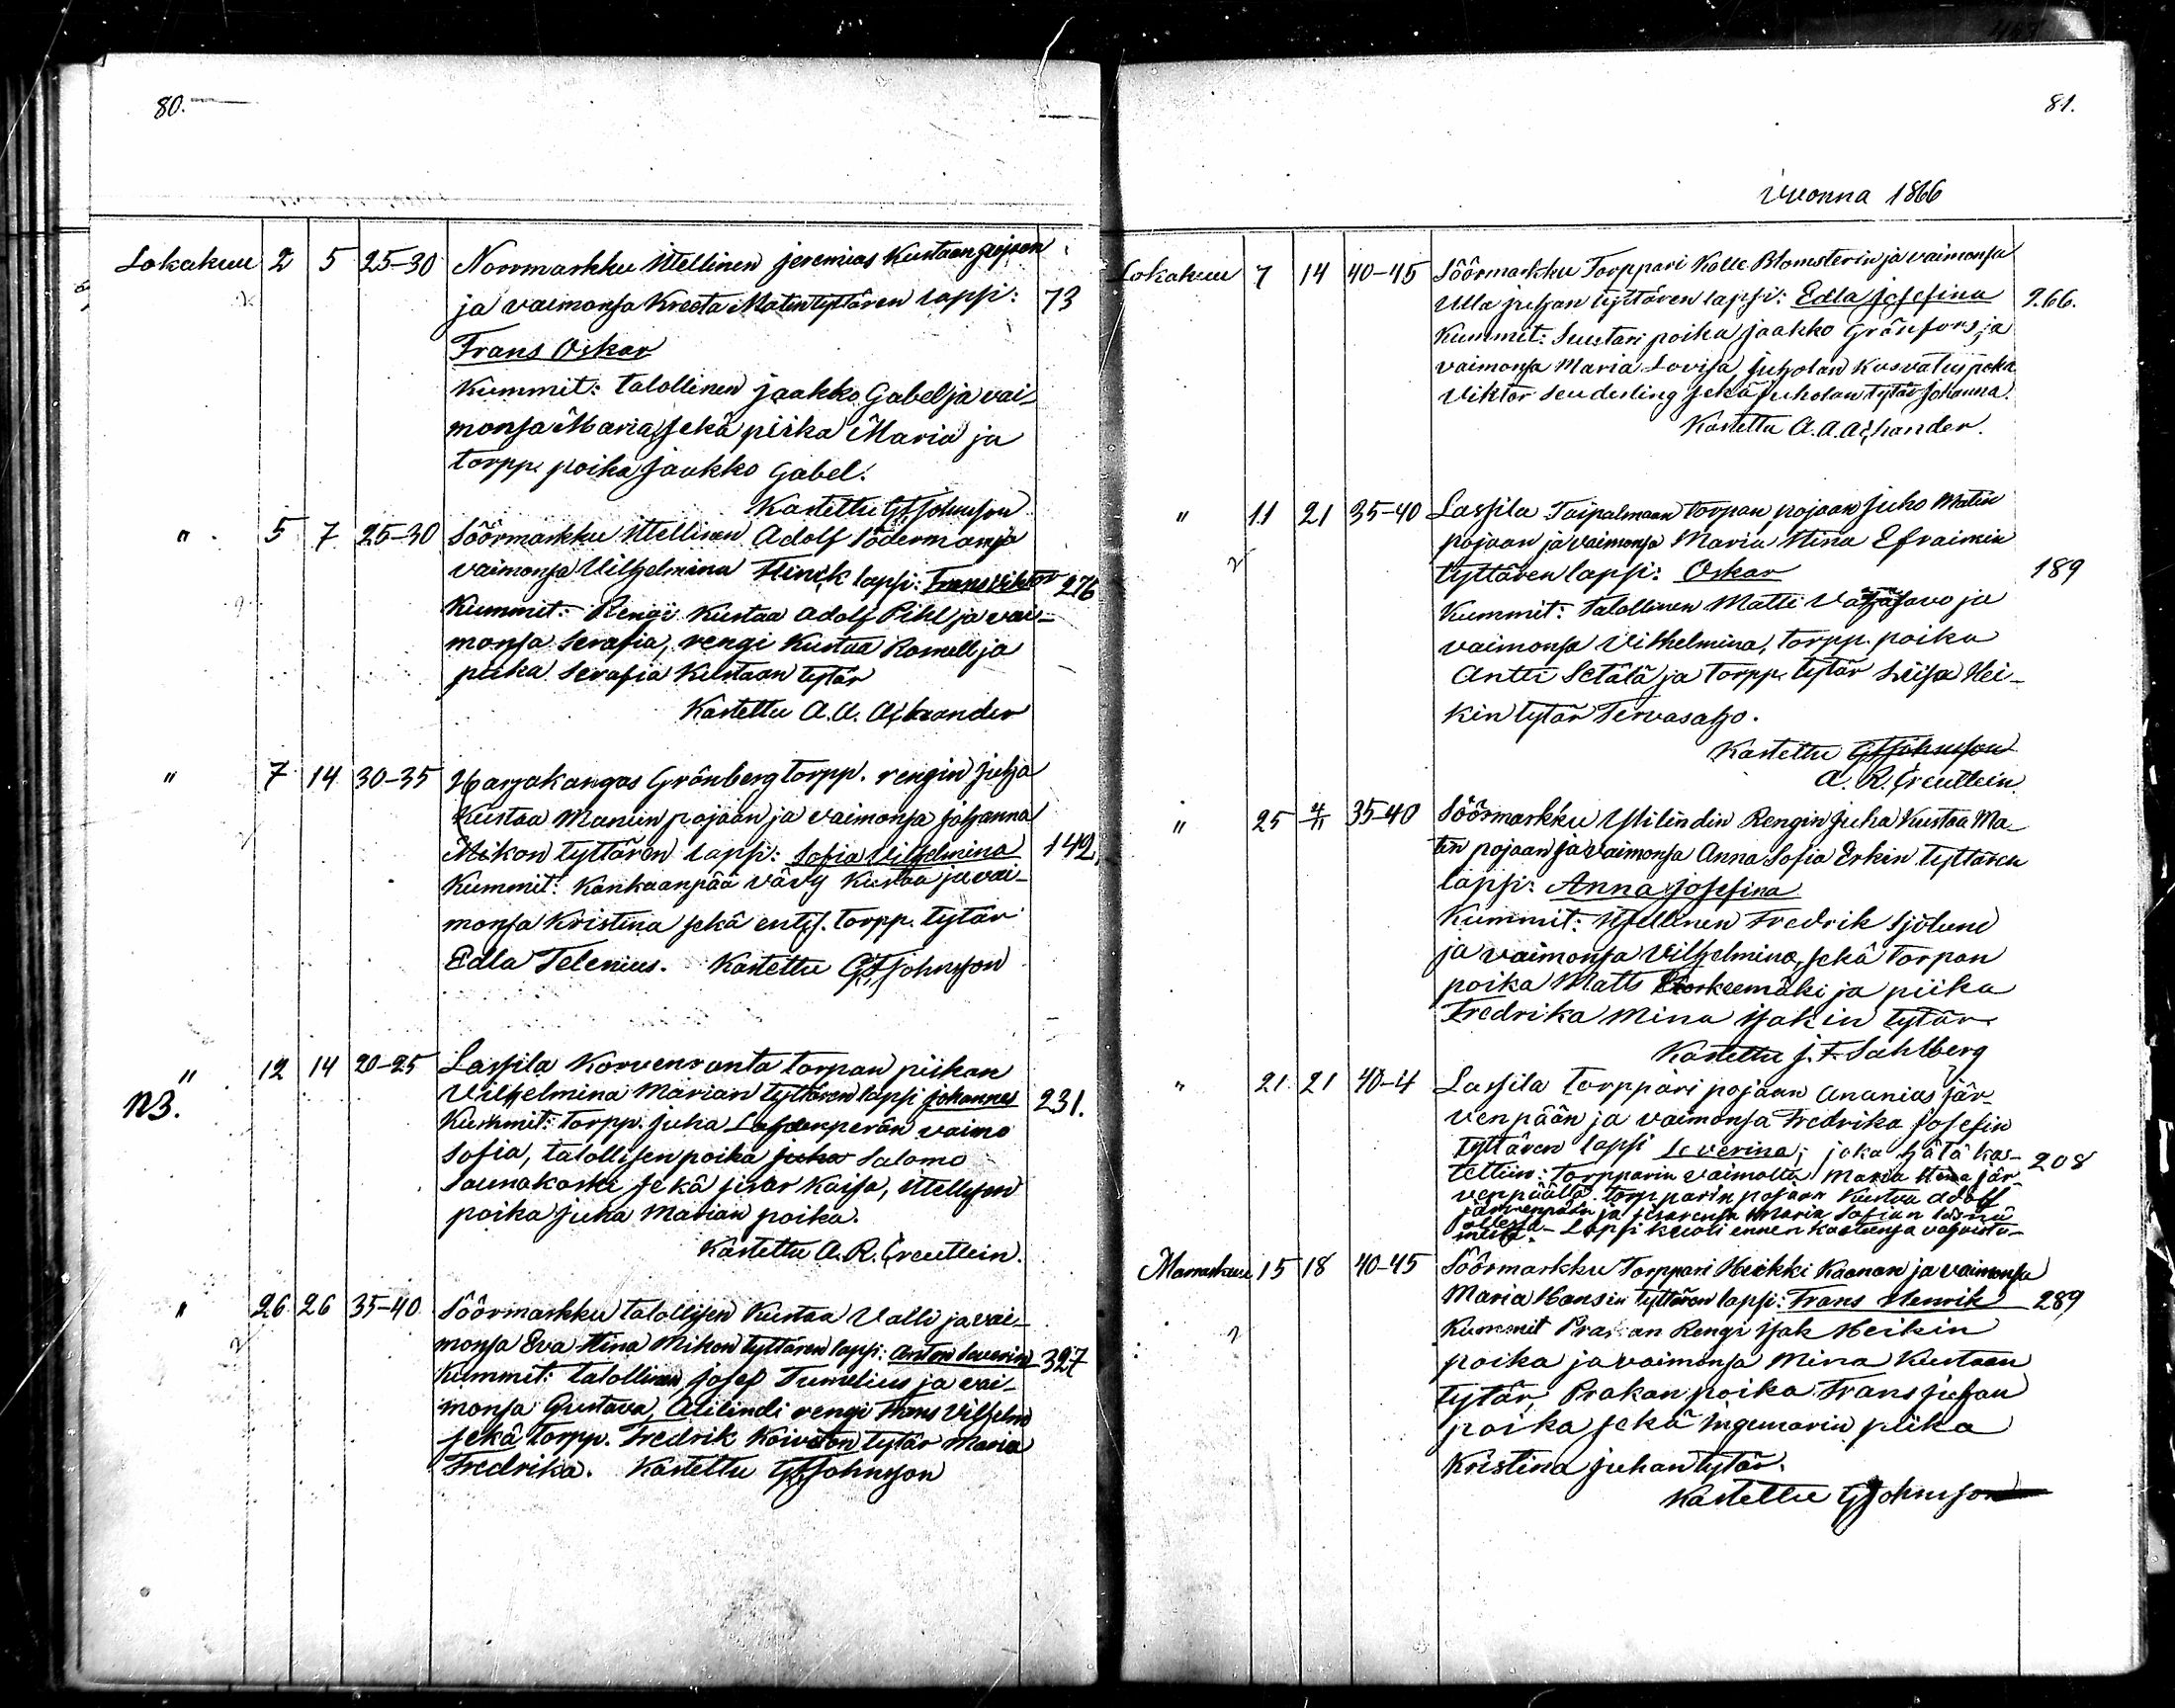 80.
Lokakuu 2 5 25-30 Norrmarkku Itellinen jeremias Kustaan pojan
ja vaimonsa Kreeta Matin tyttären lapsi: 73
Frans Oskar
Kummit: talollinen jaakko Gabel ja vai-
monsa Maria, sekä piika Maria ja
torpp. poika jaakko Gabel.
Kastettu G F Johnsson
" 5 7 25-30 Söörmarkku Itellinen Adolf Söderman ja
vaimonsa Vilhelmina Flinck lapsi: Frans Viktor 276
Kummit: Rengi Kustaa Adolf Pihl ja vai-
monsa Serafia, rengi Kustaa Rosnell ja
piika Serafia Kustaan tytär
Kastettu A. A. Achrander
" 7 14 30-35 Harjakangas Grönberg torpp. rengin juha
Kustaa Manun pojaan ja vaimonsa johanna
Mikon tyttären lapsi: Sofia Vilhelmina 142
Kummit: Kankaanpää vävy Kustaa ja vai-
monsa Kristina sekä entis. torpp. tytär
Edla Telenius. Kastettu G F Johnsson
" 12 14 20-25 Lassila Korvenranta torpan piikan
N3. Vilhelmina Marian tyttären lapsi johannes 231.
Kummit: torpp. juha vaimo
Sofia, talollisen poika juha Salomo
Saunakoski sekä sisar Kaisa, ittellisen
poika juha Marian poika.
Kastettu A. R. Creutlein.
" 26 26 35-40 Söörmarkku talollisen Kustaa Valli ja vai-
monsa Eva Stina Mikon tyttären lapsi: Anton Severin 327
Kummit: talollinen josef Tumelius ja vai-
monsa Gustava, Alilindi rengi Frans Vilhelm
sekä torpp. Fredrik Koiviston tytär Maria
Fredrika. Kastettu G F Johnsson
81.
Vuonna 1866
Lokakuu 7 14 40-45 Söörmarkku Torppari Kalle Blomsterin ja vaimonsa
Ulla juhan tyttären lapsi: Edla Josefina 266.
Kummit: Suutari poika jaakko Gränfors, ja
vaimonsa Maria Lovisa, juholan Kasvatus poika
Viktor Seuderling sekä juholan tytär johanna.
Kastettu A. A. Achrander.
" 11 21 35-40 Lassila Taipalmaan torpan pojaan juho Matin
pojaan ja vaimonsa Maria Stina Efraimin
tyttären lapsi: Oskar 189
Kummit: talollinen Matti ja
vaimonsa Vilhelmina, torpp. poika
Antti Setälä ja torpp. tytär Leisa Hei-
kin tytär Tervasalho.
Kastettu G F Johnsson
A. R. Creutlein
" 25 4/11 35-40 Söörmarkku Ylilindin Rengin juha Kustaa Ma-
tin pojaan ja vaimonsa Anna Sofia Erkin tyttären
lapsi: Anna josefina
Kummit: Itsellinen Fredrik Sjölund
ja vaimonsa Vilhelmina, sekä torpan
poika Matts ja piika
Fredrika Mina Isakin tytär.
Kastettu j. F. Sahlberg
" 21 21 40-4 Lassila torppari pojaan Ananias Jär-
venpään ja vaimonsa Fredrika josefin
tyttären lapsi Severina; joka hätä kas- 208
tettiin: torpparin vaimolta Maria Stina jär-
venpäältä torpparin pojaan Kustaa Adolf
järvenpään ja sisarensa Maria Sofian läsnä
ollessa - Lapsi kuoli ennen kasteensa vahvista-
mista.
Marraskuu 15 18 40-45 Söörmarkku Torppari Heikki Kaanan ja vaimonsa
Maria Hansin tyttären lapsi: Frans Henrik 289
Kummit Prakan Rengi Isak Heikin
poika ja vaimonsa Mina Kustaan
tytär, Prakan poika Frans juhan
poika sekä Ingemarin piika
Kristina juhan tytär.
Kastettu G F Johnsson